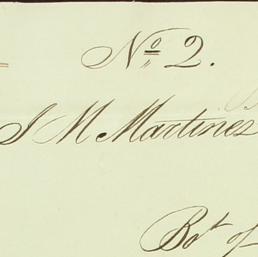 No 2.
S M Martines
Bot of